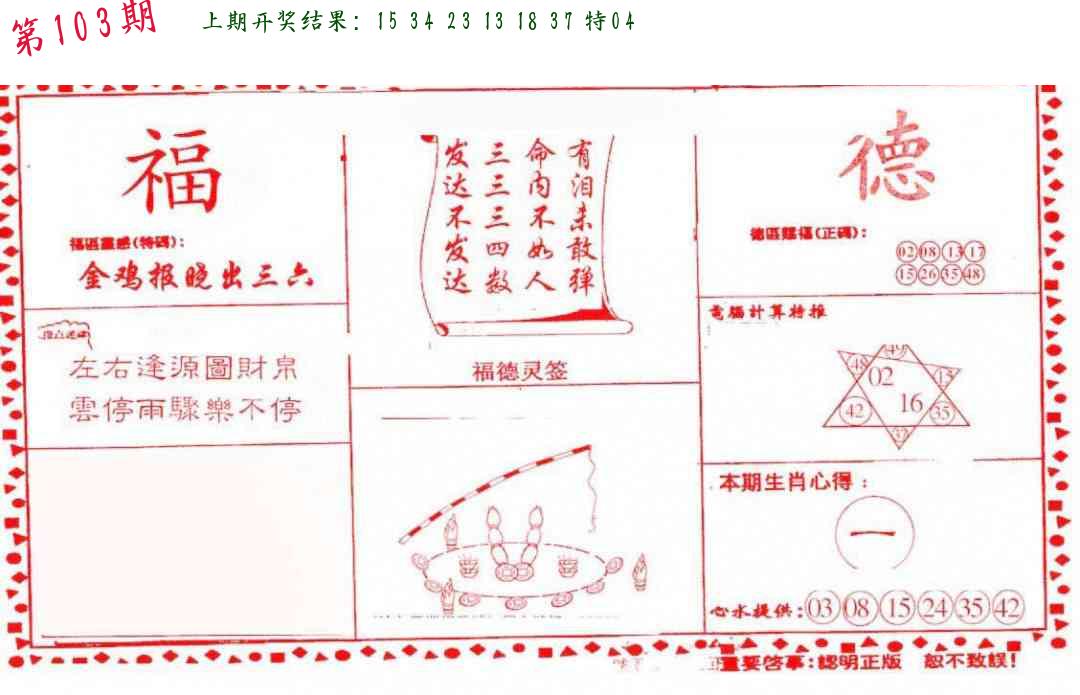 第103期
上期开奖结果: 15 34 23 13 18 37 特04
福
福區靈感(特碼):
金鸡报晓出三六
左右逢源圖財帛
雲停雨驟樂不停
有泪未敢弹
命内不如人
三三三四数
发达不发达
福德灵签
德
德區賜福(正碼):
02 08 13 17
15 26 35 48
電腦計算特推
49
48 02 15
42 16 35
本期生肖心得:
一
心水提供: 03 08 15 24 35 42
重要啓事:認明正版 恕不致誤!